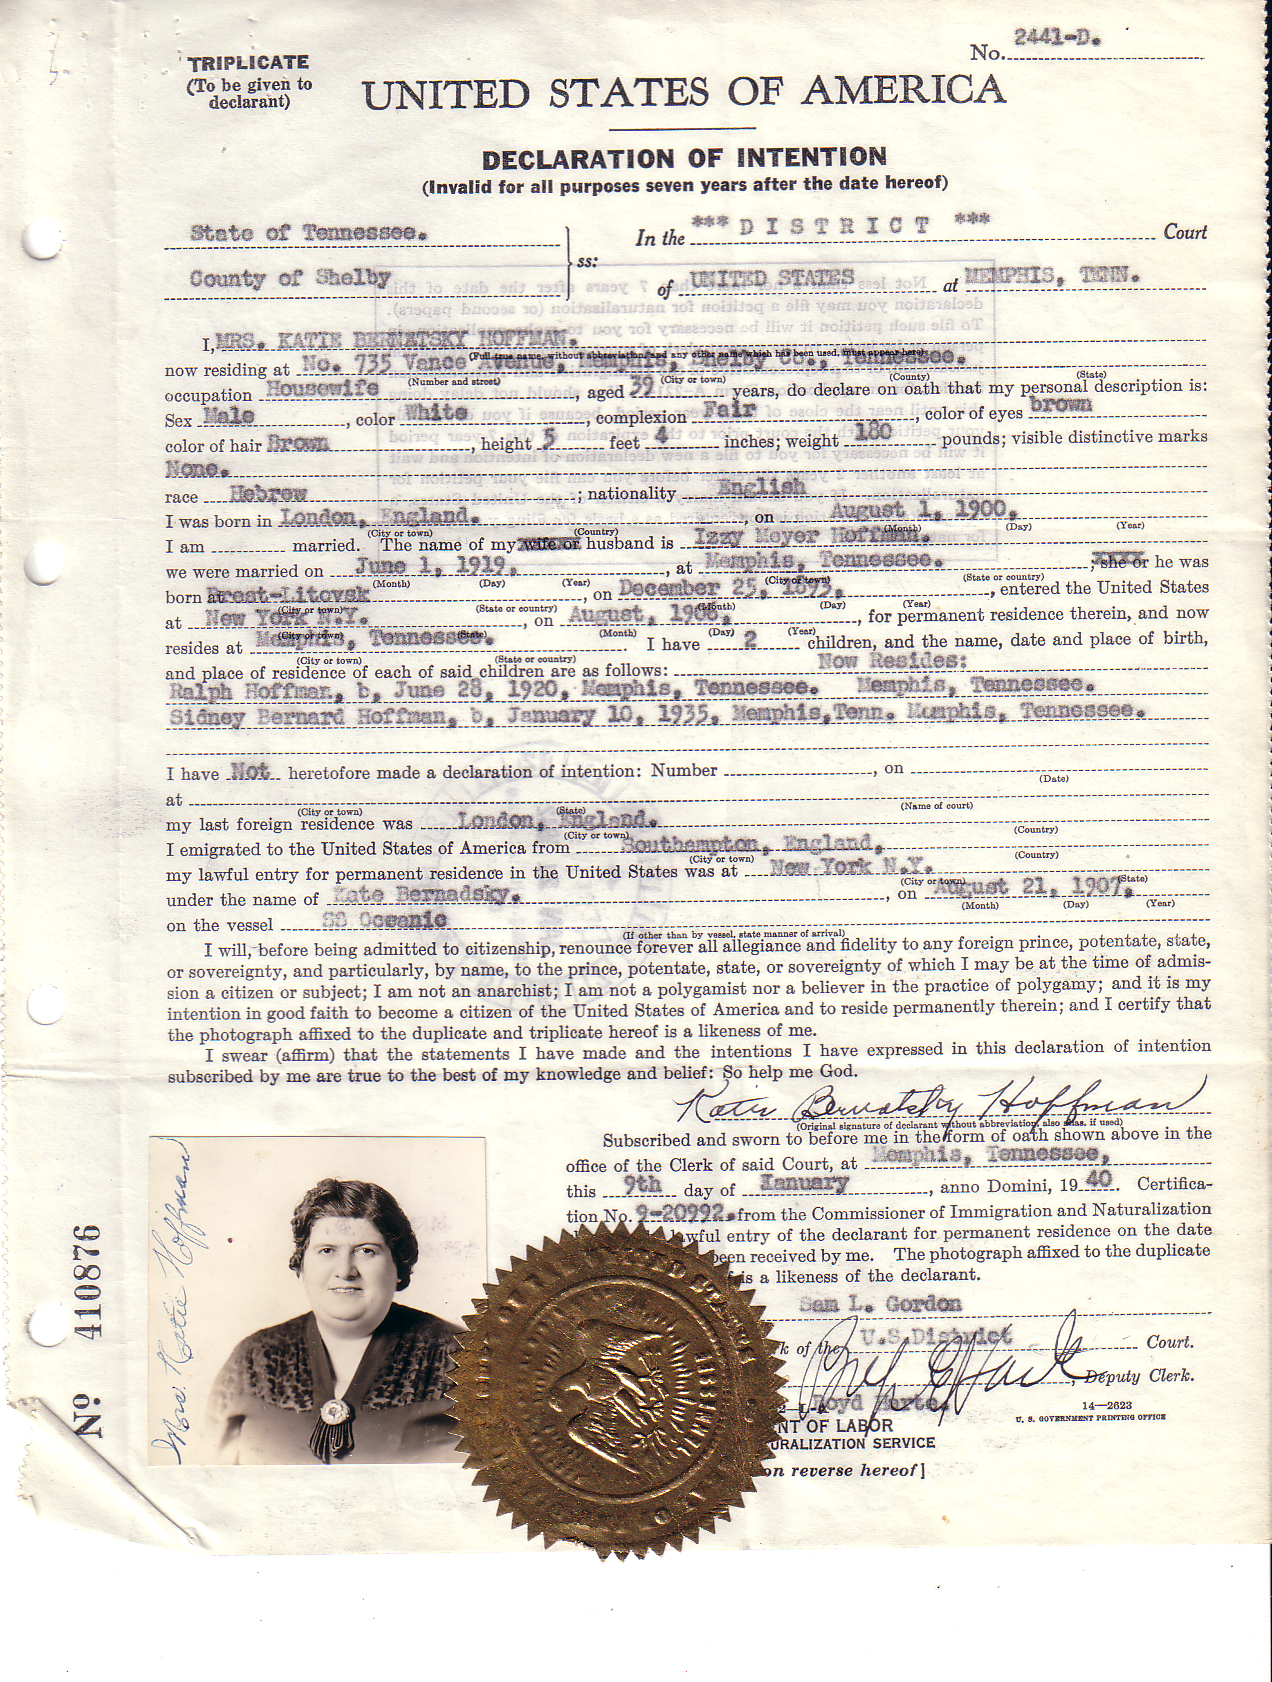 No. 2441-D.
TRIPLICATE
(To be given to
declarant)
UNITED STATES OF AMERICA
DECLARATION OF INTENTION
(Invalid for all purposes seven years after the date hereof)
State of Tennessee.
County of Shelby
ss:
In the *** DISTRICT *** Court
of UNITED STATES at MEMPHIS, TENN.
I, MRS. KATIE BERNATSKY HOFFMAN.
(Full true name, without abbreviation, and any other name which has been used, must appear here)
now residing at No. 735 Vance Avenue, Memphis, Shelby Co., Tennessee.
(Number and street) (City or town) (County) (State)
occupation Housewife, aged 39 years, do declare on oath that my personal description is:
Sex Male, color White, complexion Fair, color of eyes brown
color of hair Brown, height 5 feet 4 inches; weight 180 pounds; visible distinctive marks
None.
race Hebrew; nationality English
I was born in London, England., on August 1, 1900,
(City or town) (Country) (Month) (Day) (Year)
I am married. The name of my wife or husband is Izzy Meyer Hoffman.
we were married on June 1, 1919, at Memphis, Tennessee.; she or he was
(Month) (Day) (Year) (City or town) (State or country)
born Brest-Litovsk, on December 25, 1893, entered the United States
(City or town) (State or country) (Month) (Day) (Year)
at New York N.Y., on August, 1906, for permanent residence therein, and now
(City or town) (State) (Month) (Day) (Year)
resides at Memphis, Tennessee. I have 2 children, and the name, date and place of birth,
(City or town) (State or country)
and place of residence of each of said children are as follows: Now Resides:
Ralph Hoffman, b, June 28, 1920, Memphis, Tennessee. Memphis, Tennessee.
Sidney Bernard Hoffman, b, January 10, 1935, Memphis, Tenn. Memphis, Tennessee.
I have Not heretofore made a declaration of intention: Number , on
(Date)
at
(City or town) (State) (Name of court)
my last foreign residence was London, England.
(City or town) (Country)
I emigrated to the United States of America from Southampton, England,
(City or town) (Country)
my lawful entry for permanent residence in the United States was at New York N.Y.
(City or town) (State)
under the name of Kate Bernadsky., on August 21, 1907,
(Month) (Day) (Year)
on the vessel SS Oceanic
(If other than by vessel, state manner of arrival)
I will, before being admitted to citizenship, renounce forever all allegiance and fidelity to any foreign prince, potentate, state,
or sovereignty, and particularly, by name, to the prince, potentate, state, or sovereignty of which I may be at the time of admis-
sion a citizen or subject; I am not an anarchist; I am not a polygamist nor a believer in the practice of polygamy; and it is my
intention in good faith to become a citizen of the United States of America and to reside permanently therein; and I certify that
the photograph affixed to the duplicate and triplicate hereof is a likeness of me.
I swear (affirm) that the statements I have made and the intentions I have expressed in this declaration of intention
subscribed by me are true to the best of my knowledge and belief: So help me God.
Katie Bernatsky Hoffman
(Original signature of declarant without abbreviation, also alias, if used)
Subscribed and sworn to before me in the form of oath shown above in the
office of the Clerk of said Court, at Memphis, Tennessee,
this 9th day of January, anno Domini, 1940. Certifica-
tion No. 9-20992. from the Commissioner of Immigration and Naturalization
lawful entry of the declarant for permanent residence on the date
been received by me. The photograph affixed to the duplicate
is a likeness of the declarant.
Sam L. Gordon
of the U.S. District Court.
, Deputy Clerk.
14—2623
U. S. GOVERNMENT PRINTING OFFICE
NT OF LABOR
URALIZATION SERVICE
on reverse hereof]
Mrs Katie Hoffman
No. 410876